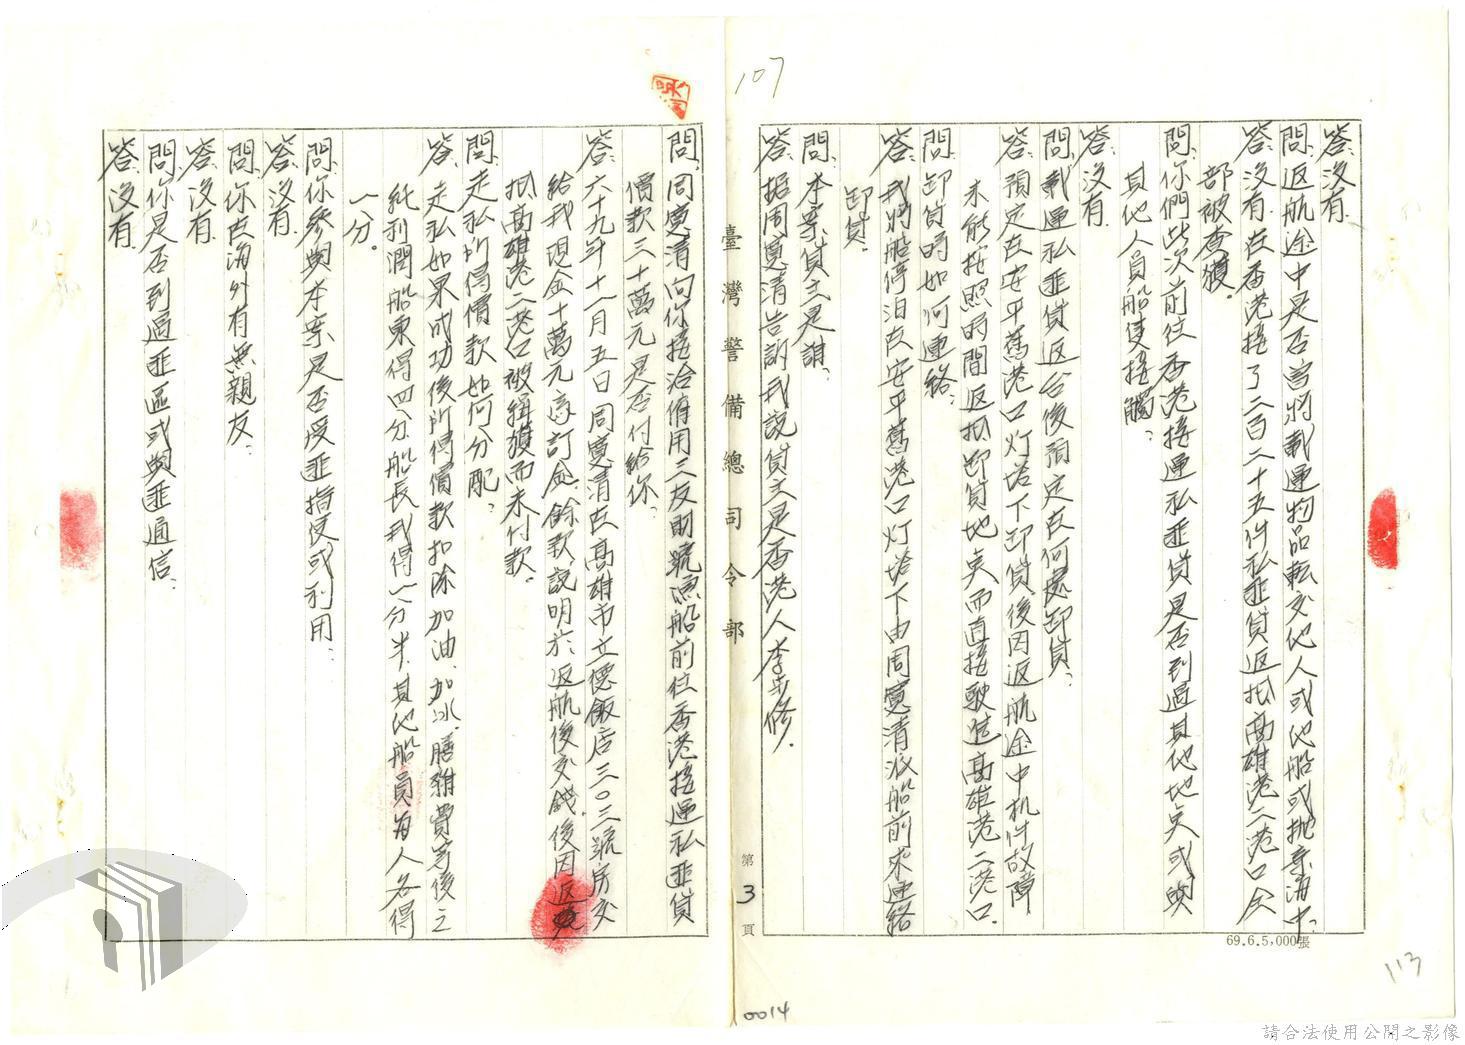 107
答：沒有.
問：返航途中是否曾將載運物品転交他人或他船或抛棄海中？
答：沒有.在香港接了二百二十五件私匪貨返抵高雄港二港口全
部被查獲。
問：你們此次前往香港接運私匪貨是否到過其他地點或與
其他人員船隻接觸？
答：沒有
問：載運私匪貨返台後預定在何處卸貨？
答：預定在安平舊港口灯塔下卸貨後因返航途中机件故障
未能按照時間返抵卸貨地點而直接駛進高雄港二港口.
問：卸貨時如何連絡？
答：我將船停泊在安平舊港口灯塔下由周寬清派船前來連絡
卸貨.
問：本案貨主是誰？
答：据周寬清告訴我說貨主是香港人李步修.
臺灣警備總司令部
第3頁
69.6.5,000張
113
問：周寬清向你接洽僱用三友財號漁船前往香港接運私匪貨
價款三十萬元是否付給你？
答：六十九年十一月五日周寬清在高雄市立德飯店三〇三號房交
給我現金十萬元為訂金、餘款說明於返航後交錢.後因返
抵高雄港二港口被緝獲而未付款.
問：走私所得價款如何分配？
答：走私如果成功後所得價款扣除加油、加冰、膳雜費等後之
純利潤船東得四分、船長我得一分半.其他船員每人各得
一分。
問：你參與本案是否受匪指使或利用？
答：沒有.
問：你在海外有無親友？
答：沒有.
問：你是否到過匪區或與匪通信？
答：沒有.
0014
請合法使用公開之影像